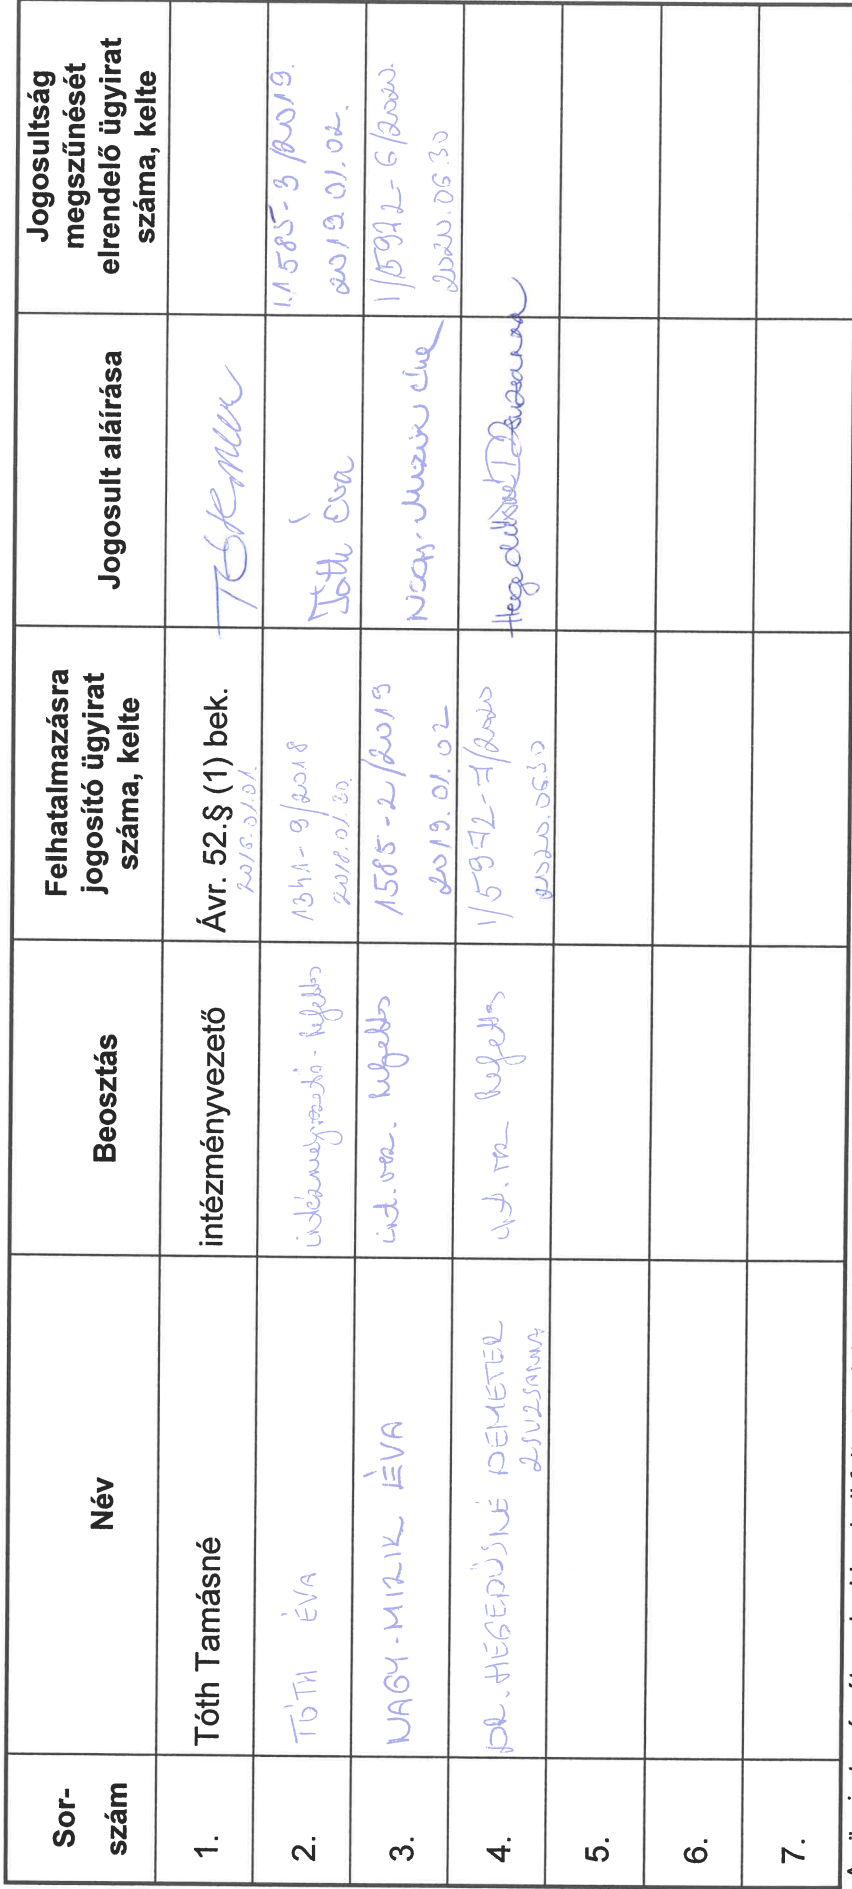 Sor-
szám
Név
Beosztás
Felhatalmazásra
jogosító ügyirat
száma, kelte
Jogosult aláírása
Jogosultság
megszűnését
elrendelő ügyirat
száma, kelte
1.
Tóth Tamásné
intézményvezető
Ávr. 52.§ (1) bek.
2016.01.01.
2.
TÓTH ÉVA
intézményvezető-helyettes
1341-9/2018
2018.01.30.
Tóth Éva
1.1585-3/2019.
2019.01.02.
3.
NAGY-MIZIK ÉVA
int. vez. helyettes
1585-2/2019
2019.01.02
Nagy-Mizik Éva
1/5972-6/2020.
2020.06.30
4.
DR. HEGEDŰSNÉ DEMETER
ZSUZSANNA
int. vez helyettes
1/5972-7/2020
2020.06.30
5.
6.
7.